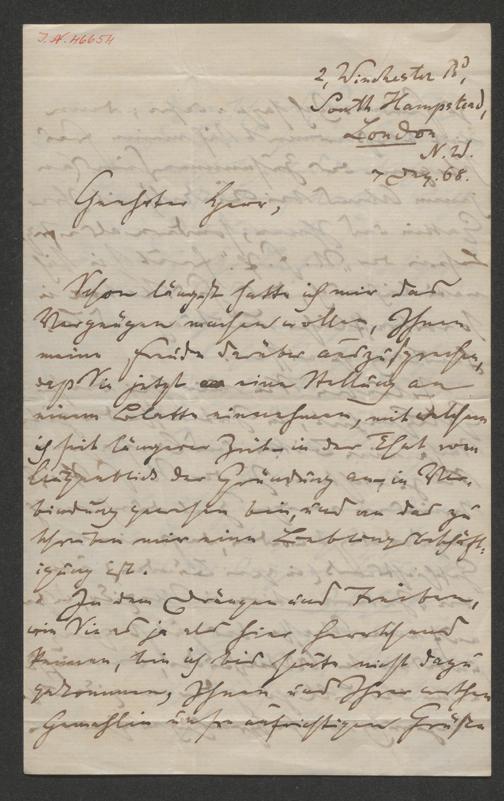 J. N. 46654
2, Winchester Rd,
South Hampstead,
London
N. W.
7 Dez. 68.
Geehrter Herr,
Schon längst hatte ich mir das
Vergnügen machen wollen, Ihnen
meine Freude darüber auszusprechen,
daß Sie jetzt eine Stellung an
einem Blatte einnehmen, mit welchem
ich seit längerer Zeit, in der That, vom
Augenblick der Gründung an, in Ver-
bindung gewesen bin, und an das zu
schreiben mir eine Lieblingsbeschäft-
igung ist.
In dem Drängen und Treiben,
wie Sie es ja als hier herrschend
kennen, bin ich bis heute nicht dazu
gekommen, Ihnen und Ihrer werthen
Gemahlin unsre aufrichtigen Grüße